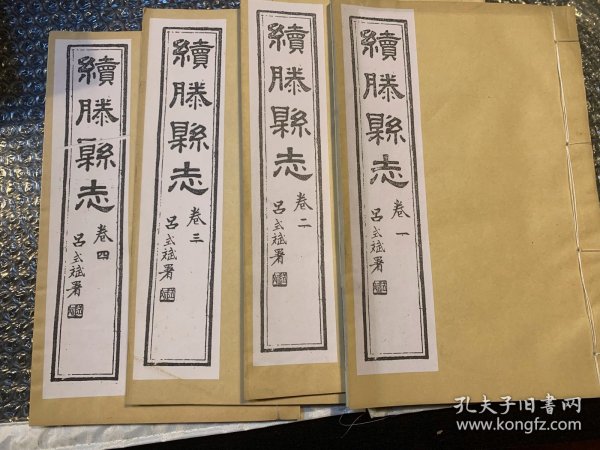 續滕縣志
卷一
呂式斌署
續滕縣志
卷二
呂式斌署
續滕縣志
卷三
呂式斌署
續滕縣志
卷四
呂式斌署
孔夫子旧书网
www.kongfz.com